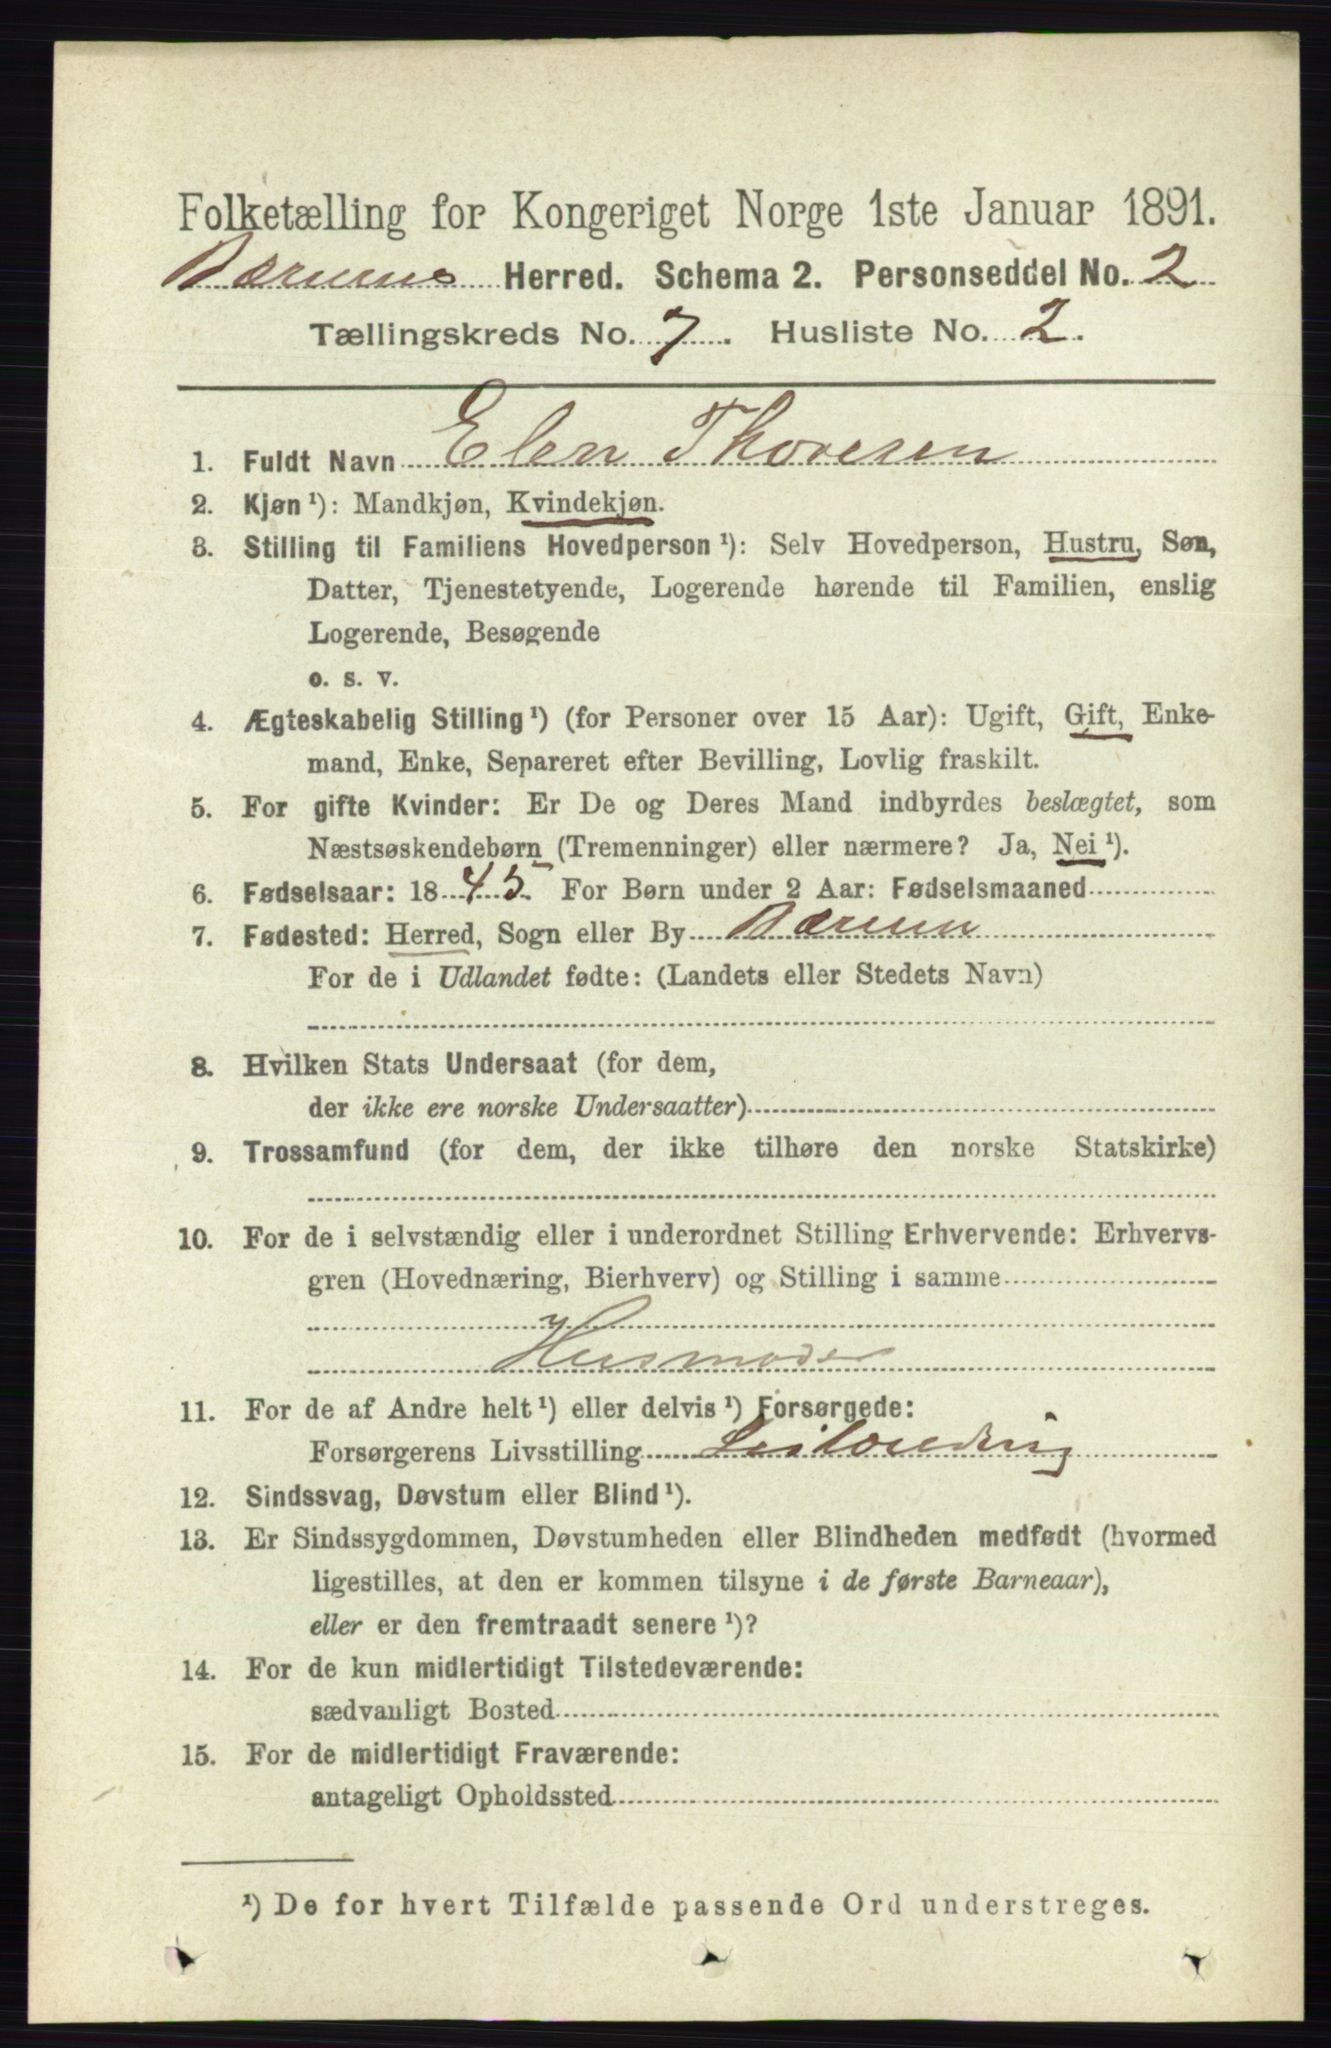 Folketælling for Kongeriget Norge 1ste Januar 1891.
Bærums Herred. Schema 2. Personseddel No. 2
Tællingskreds No. 7. Husliste No. 2.
1. Fuldt Navn Elen Thoresen
2. Kjøn ¹): Mandkjøn, Kvindekjøn.
3. Stilling til Familiens Hovedperson ¹): Selv Hovedperson, Hustru, Søn,
Datter, Tjenestetyende, Logerende hørende til Familien, enslig
Logerende, Besøgende
o. s. v.
4. Ægteskabelig Stilling ¹) (for Personer over 15 Aar): Ugift, Gift, Enke-
mand, Enke, Separeret efter Bevilling, Lovlig fraskilt.
5. For gifte Kvinder: Er De og Deres Mand indbyrdes beslægtet, som
Næstsøskendebørn (Tremenninger) eller nærmere? Ja, Nei ¹).
6. Fødselsaar: 1845 For Børn under 2 Aar: Fødselsmaaned
7. Fødested: Herred, Sogn eller By Bærum
For de i Udlandet fødte: (Landets eller Stedets Navn)
8. Hvilken Stats Undersaat (for dem,
der ikke ere norske Undersaatter)
9. Trossamfund (for dem, der ikke tilhøre den norske Statskirke)
10. For de i selvstændig eller i underordnet Stilling Erhvervende: Erhvervs-
gren (Hovednæring, Bierhverv) og Stilling i samme
Husmoder
11. For de af Andre helt ¹) eller delvis ¹) Forsørgede:
Forsørgerens Livsstilling Leilænding
12. Sindssvag, Døvstum eller Blind ¹).
13. Er Sindssygdommen, Døvstumheden eller Blindheden medfødt (hvormed
ligestilles, at den er kommen tilsyne i de første Barneaar),
eller er den fremtraadt senere ¹)?
14. For de kun midlertidigt Tilstedeværende:
sædvanligt Bosted
15. For de midlertidigt Fraværende:
antageligt Opholdssted
¹) De for hvert Tilfælde passende Ord understreges.